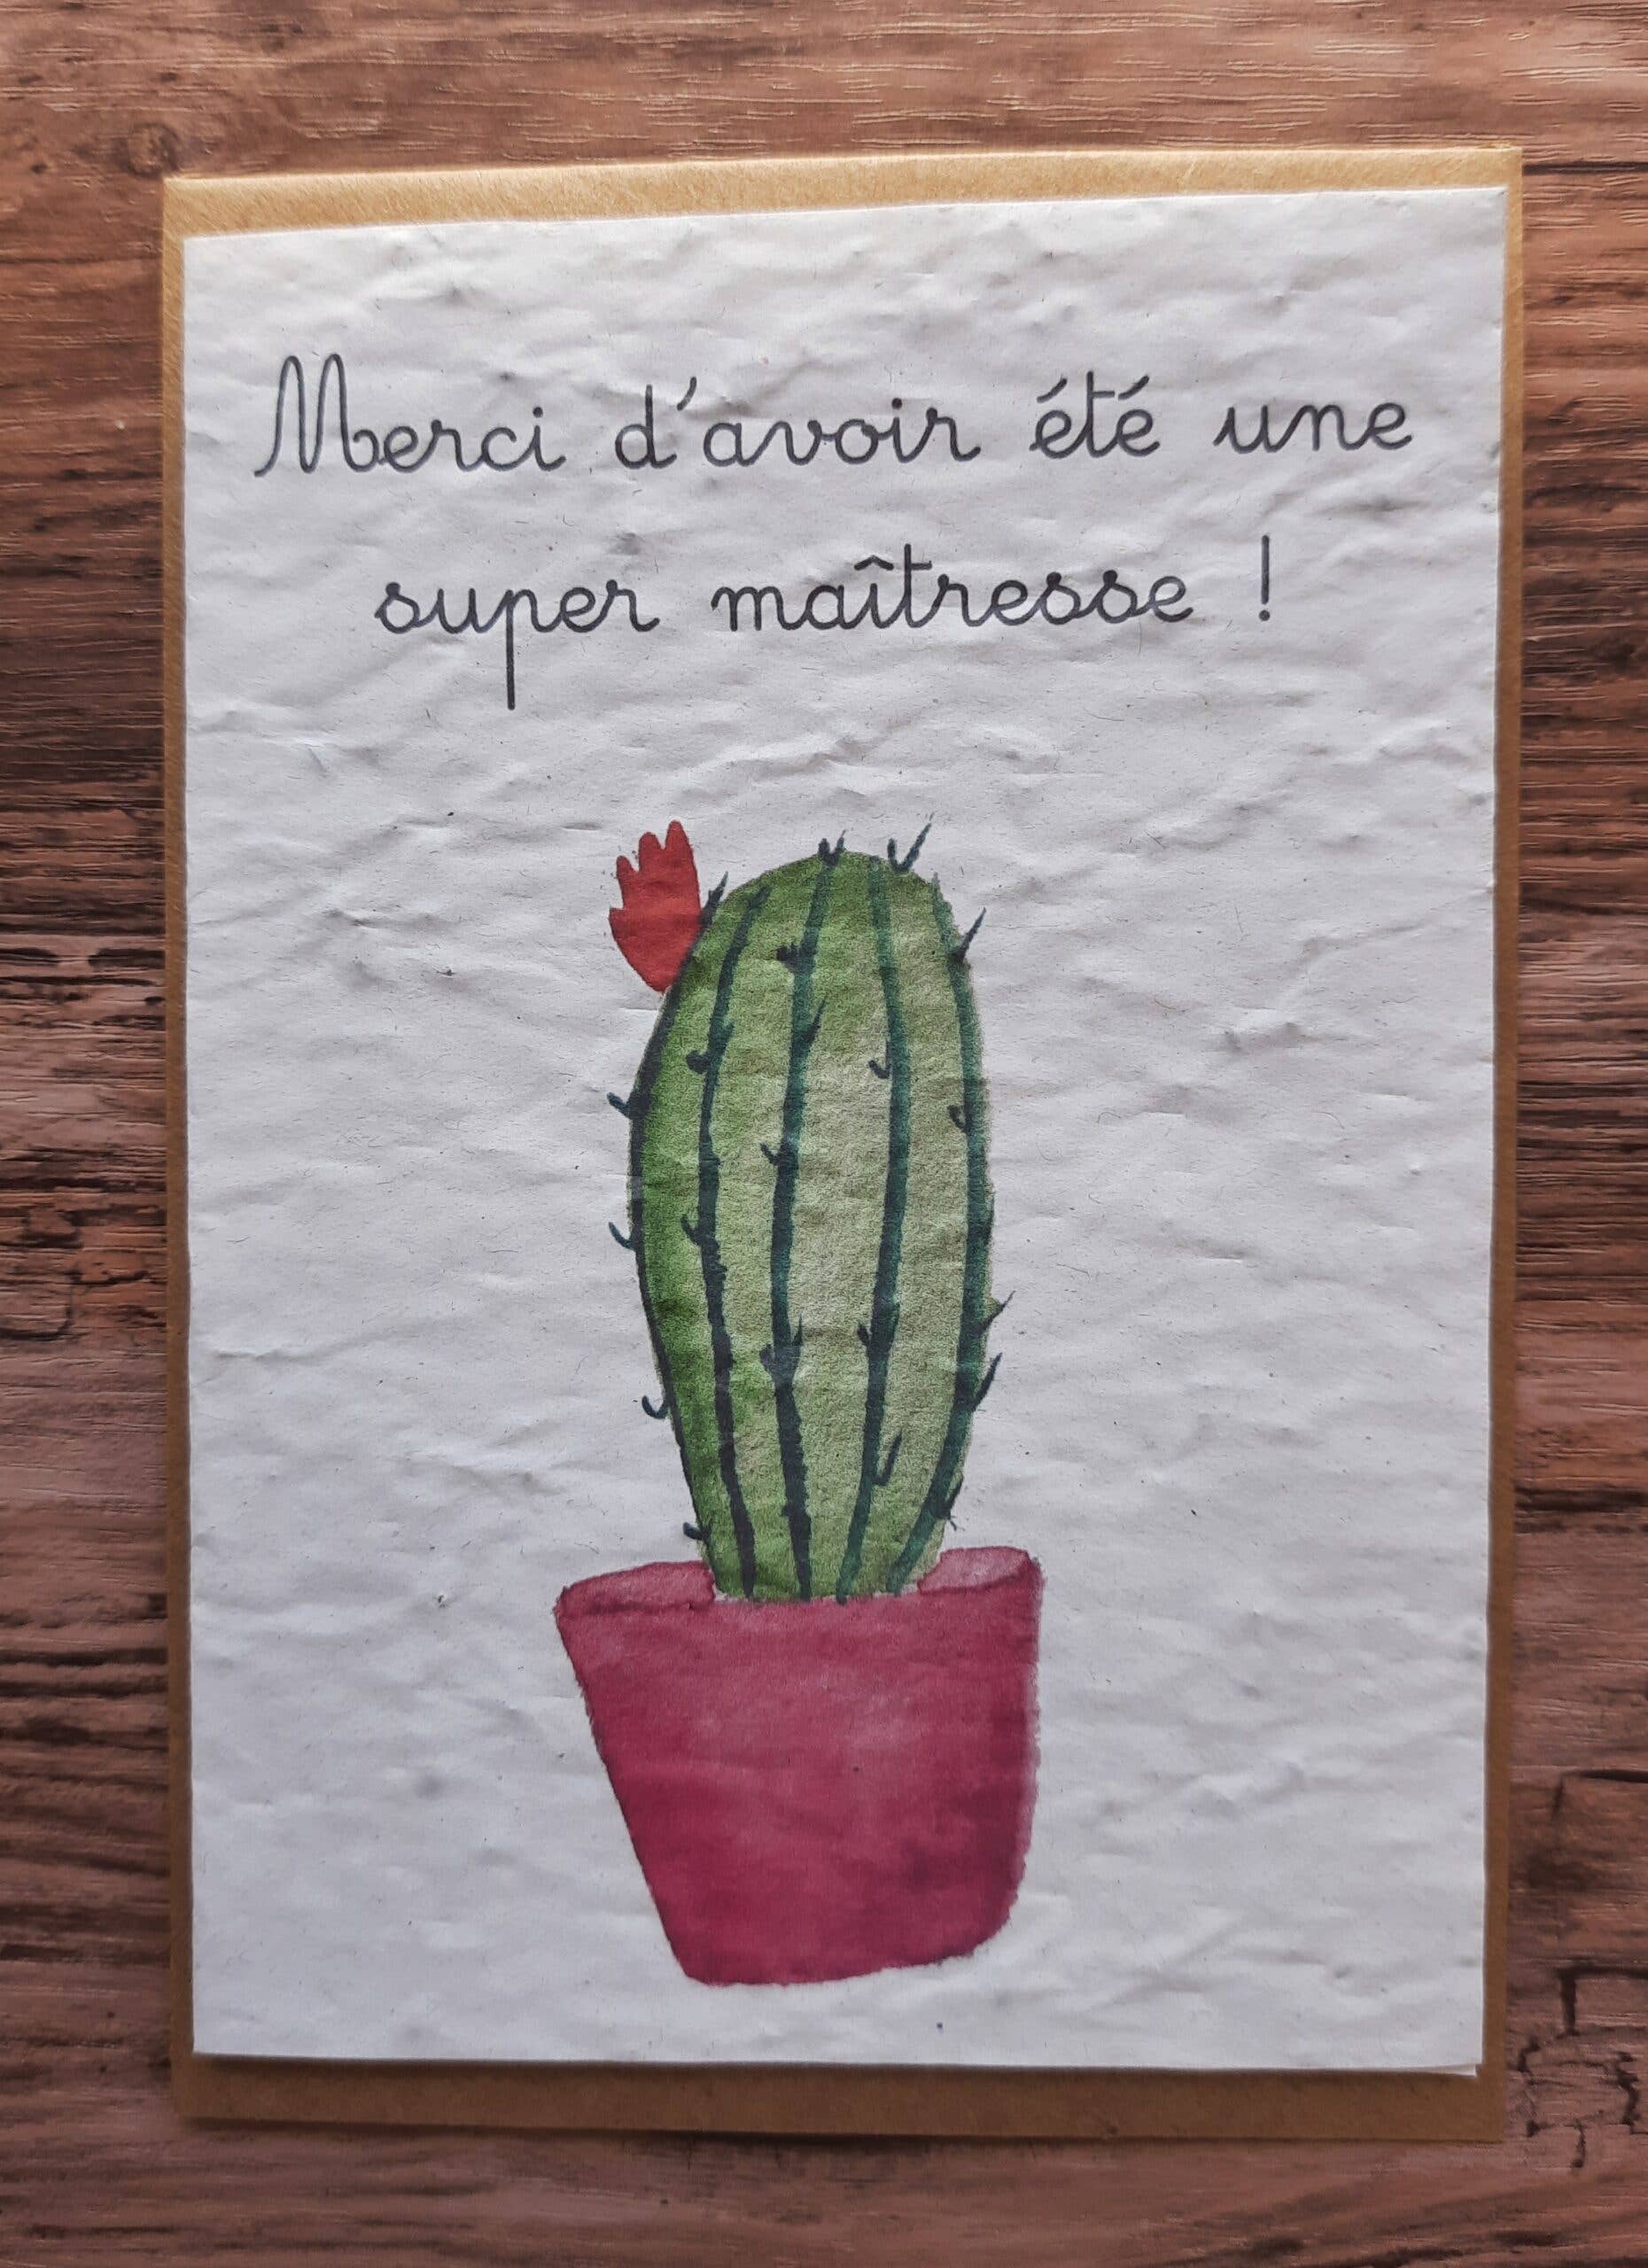 Merci d'avoir été une
super maîtresse !